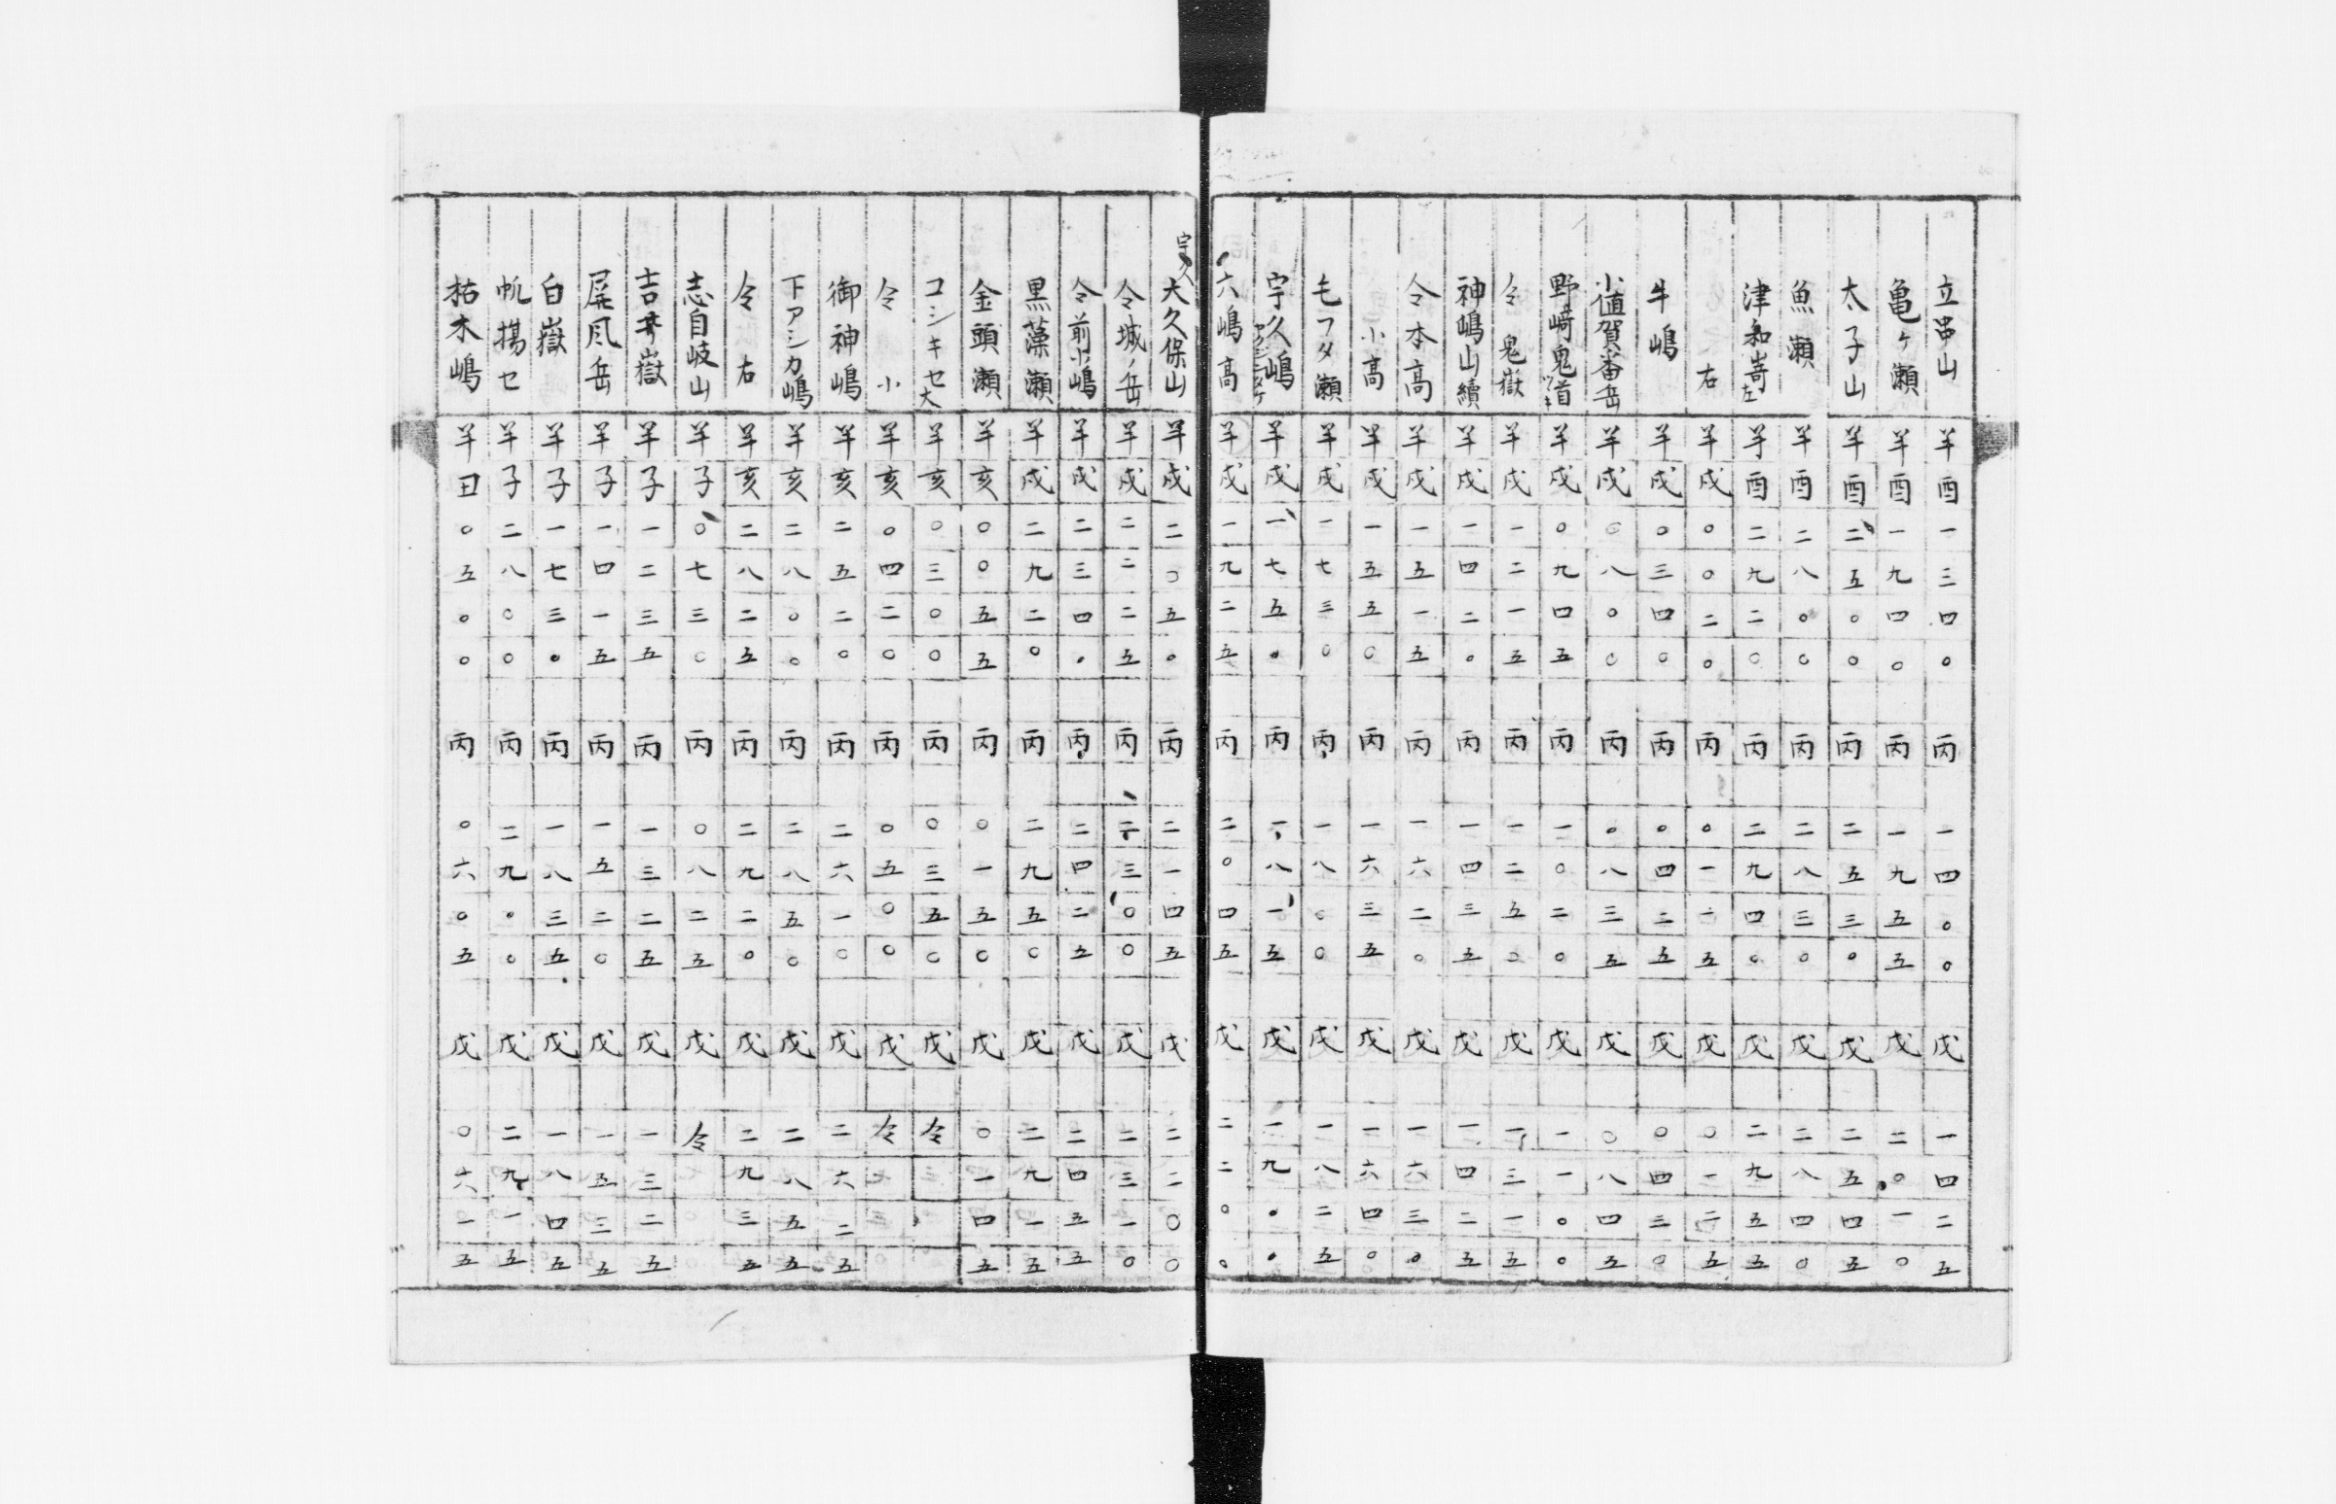 立串山 羊 酉 一 三 四 〇 丙 一 四 〇 〇 戊 一 四 二 五
亀ヶ瀬 羊 酉 一 九 四 〇 丙 一 九 五 五 戊 二 〇 一 〇
太子山 羊 酉 二 五 〇 〇 丙 二 五 三 〇 戊 二 五 四 五
魚瀬 羊 酉 二 八 〇 〇 丙 二 八 三 〇 戊 二 八 四 〇
津和嵜左 羊 酉 二 九 二 〇 丙 二 九 四 〇 戊 二 九 五 五
右 羊 戌 〇 〇 二 〇 丙 〇 一 一 五 戊 〇 一 二 五
牛嶋 羊 戌 〇 三 四 〇 丙 〇 四 二 五 戊 〇 四 三 〇
小値賀番岳 羊 戌 〇 八 〇 〇 丙 〇 八 三 五 戊 〇 八 四 五
野﨑鬼首 羊 戌 〇 九 四 五 丙 一 〇 二 〇 戊 一 一 〇 〇
仝鬼嶽 羊 戌 一 二 一 五 丙 一 二 五 〇 戊 一 三 一 五
神嶋山續 羊 戌 一 四 二 〇 丙 一 四 三 五 戊 一 四 二 五
仝本高 羊 戌 一 五 一 五 丙 一 六 二 〇 戊 一 六 三 〇
小高 羊 戌 一 五 五 〇 丙 一 六 三 五 戊 一 六 四 〇
毛フタ瀬 羊 戌 一 七 三 〇 丙 一 八 〇 〇 戊 一 八 二 五
宇久嶋 羊 戌 一 七 五 〇 丙 一 八 一 五 戊 一 九 〇 〇
六嶋高 羊 戌 一 九 二 五 丙 二 〇 四 五 戊 二 二 〇 〇
宇久大久保山 羊 戌 二 〇 五 〇 丙 二 一 四 五 戊 二 二 〇 〇
仝城ノ岳 羊 戌 二 二 二 五 丙 二 三 〇 〇 戊 二 三 一 〇
仝前小嶋 羊 戌 二 三 四 〇 丙 二 四 二 五 戊 二 四 五 五
黒藻瀬 羊 戌 二 九 二 〇 丙 二 九 五 〇 戊 二 九 一 五
金頭瀬 羊 亥 〇 〇 五 五 丙 〇 一 五 〇 戊 〇 一 四 五
コシキセ大 羊 亥 〇 三 〇 〇 丙 〇 三 五 〇 戊 仝
仝小 羊 亥 〇 四 二 〇 丙 〇 五 〇 〇 戊 仝
御神嶋 羊 亥 二 五 二 〇 丙 二 六 一 〇 戊 二 六 二 五
下アシカ嶋 羊 亥 二 八 〇 〇 丙 二 八 五 〇 戊 二 八 五 五
仝右 羊 亥 二 八 二 五 丙 二 九 二 〇 戊 二 九 三 五
志自岐山 羊 子 〇 七 三 〇 丙 〇 八 二 五 戊 仝
吉井嶽 羊 子 一 二 三 五 丙 一 三 二 五 戊 一 三 二 五
屏風岳 羊 子 一 四 一 五 丙 一 五 二 〇 戊 一 五 三 五
白嶽 羊 子 一 七 三 〇 丙 一 八 三 五 戊 一 八 四 五
帆揚セ 羊 子 二 八 〇 〇 丙 二 九 〇 〇 戊 二 九 一 五
枯木嶋 羊 丑 〇 五 〇 〇 丙 〇 六 〇 五 戊 〇 六 一 五